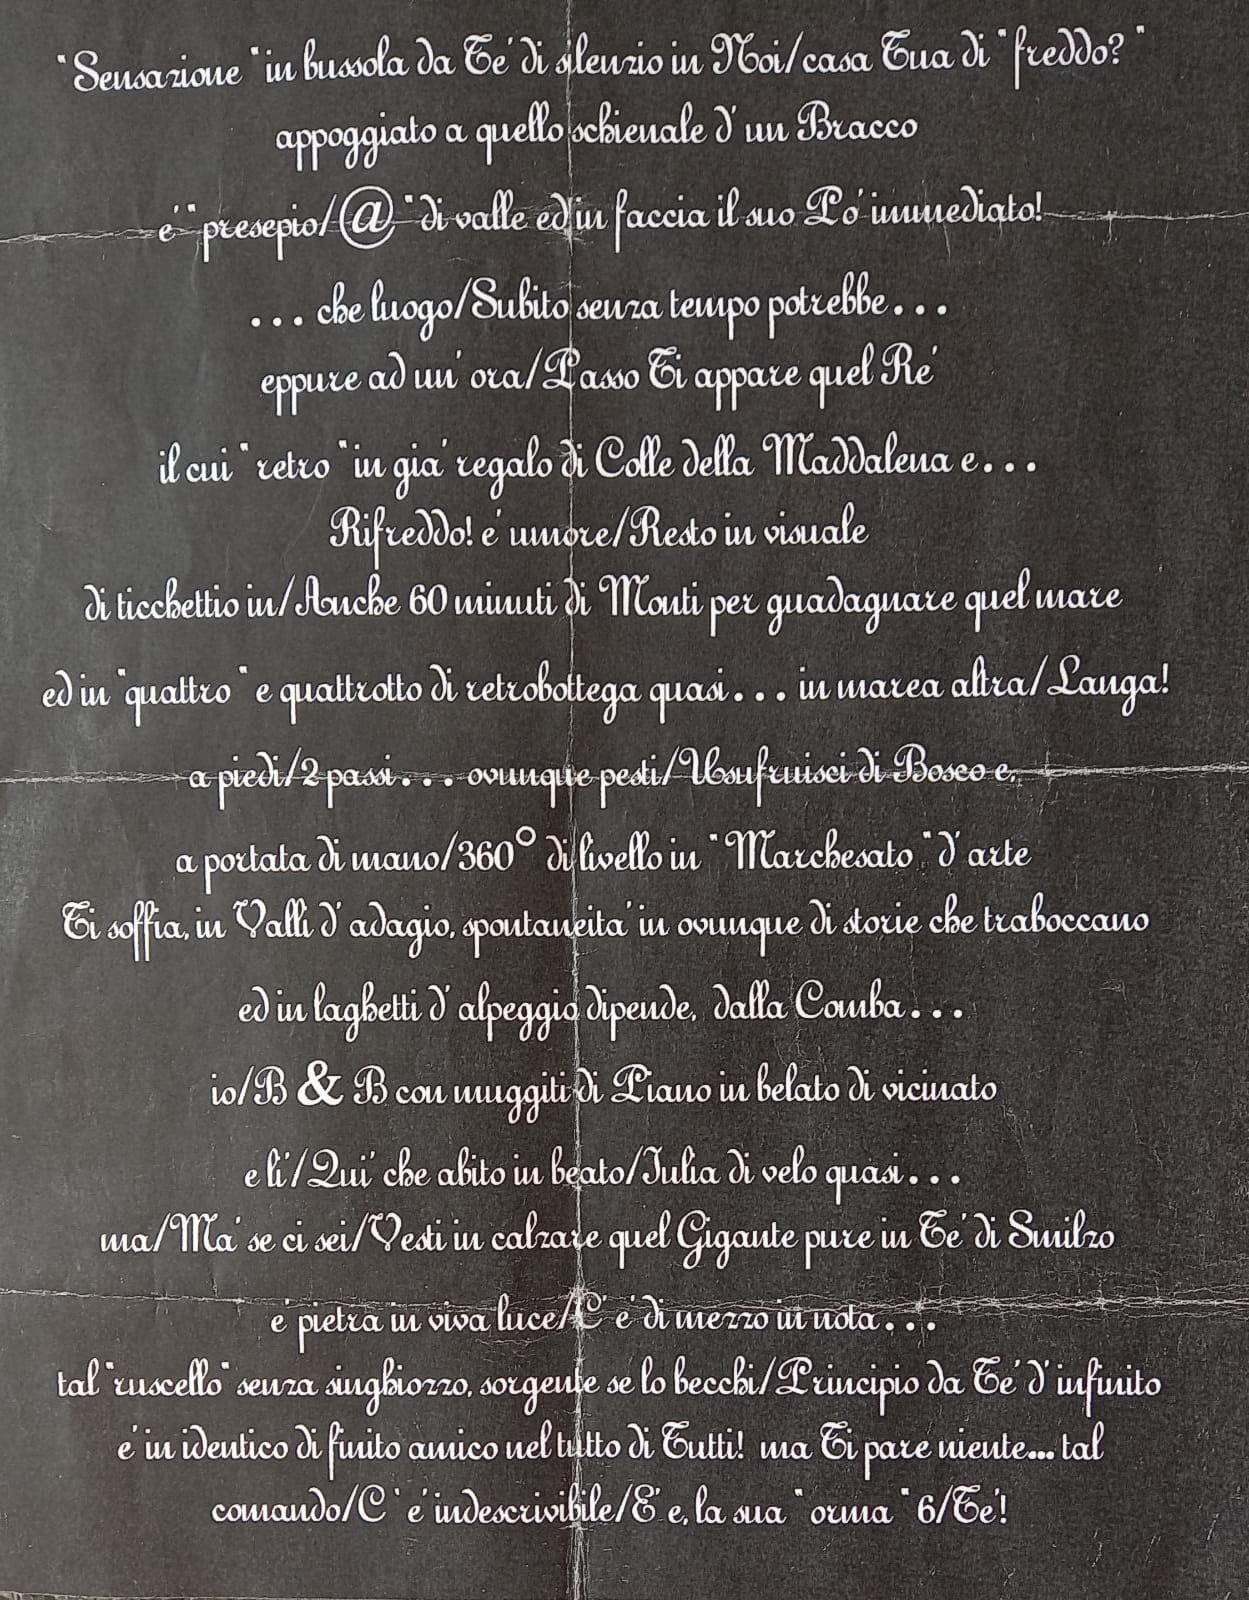 "Sensazione" in bussola da Te' di silenzio in Noi/casa Tua di "freddo?"
appoggiato a quello schienale d'un Bracco
e' "presepio/@" di valle ed in faccia il suo Po' immediato!
... che luogo/Subito senza tempo potrebbe...
eppure ad un' ora/Passo Ti appare quel Re'
il cui "retro" in gia' regalo di Colle della Maddalena e...
Rifreddo! e' umore/Resto in visuale
di ticchettio in/Anche 60 minuti di Monti per guadagnare quel mare
ed in "quattro" e quattrotto di retrobottega quasi... in marea altra/Langa!
a piedi/2 passi... ovunque pesti/Usufruisci di Bosco e,
a portata di mano/360° di livello in "Marchesato" d' arte
Ti soffia, in Valli d' adagio, spontaneita' in ovunque di storie che traboccano
ed in laghetti d' alpeggio dipende, dalla Comba...
io/B & B con muggiti di Piano in belato di vicinato
e li'/Qui' che abito in beato/Julia di velo quasi...
ma/Ma' se ci sei/Vesti in calzare quel Gigante pure in Te' di Smilzo
e' pietra in viva luce/C' e' di mezzo in nota...
tal "ruscello" senza singhiozzo, sorgente se lo becchi/Principio da Te' d' infinito
e' in identico di finito amico nel tutto di Tutti! ma Ti pare niente... tal
comando/C ' e' indescrivibile/E' e, la sua "orma" 6/Te'!